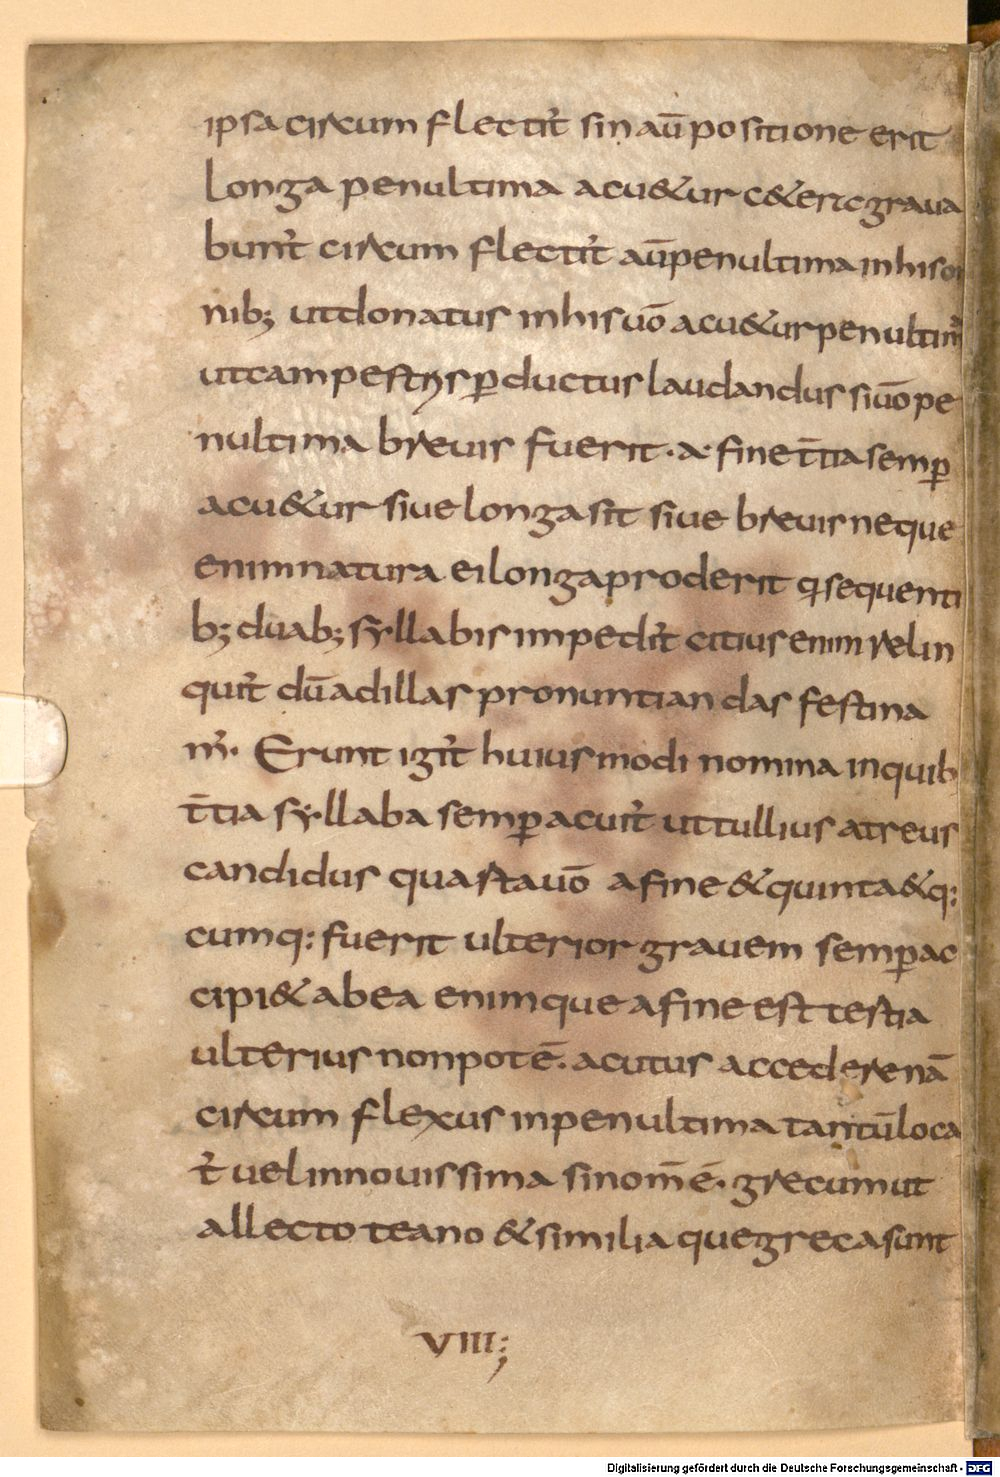 ipsa circum flectit̉ sin aū positione erit
longa penultima acu&ur c&ere graua
bunt̉ circum flectit̉ aū penultima in his o
nib; ut donatus in his uō acu&ur penultim̉
ut campestris ꝑductus laudandus si uō pe
nultima breuis fuerit · a · fine t̄tia semꝑ
acu&ur siue longa sit siue breuis neque
enim natura ei longa proderit q sequenti
b; duab; syllabis impedit̉ citius enim relin
quit̉ dū ad illas pronuntiandas festina
m̉. Erunt igit̉ huiusmodi nomina in quib
t̄tia syllaba semꝑ acuit̉ ut tullius atreus
candidus quasta uō a fine & quinta & q:
cumq: fuerit ulterior grauem semꝑ ac
cipi& ab ea enim que a fine est testia
ulterius non potē. acutus accedere nā
circum flexus in penultima tantū loca
t̉ uel in nouissima si nom̄ ē. grecum ut
allecto teano & similia que greca sunt
VIII;
Digitalisierung gefördert durch die Deutsche Forschungsgemeinschaft - DFG